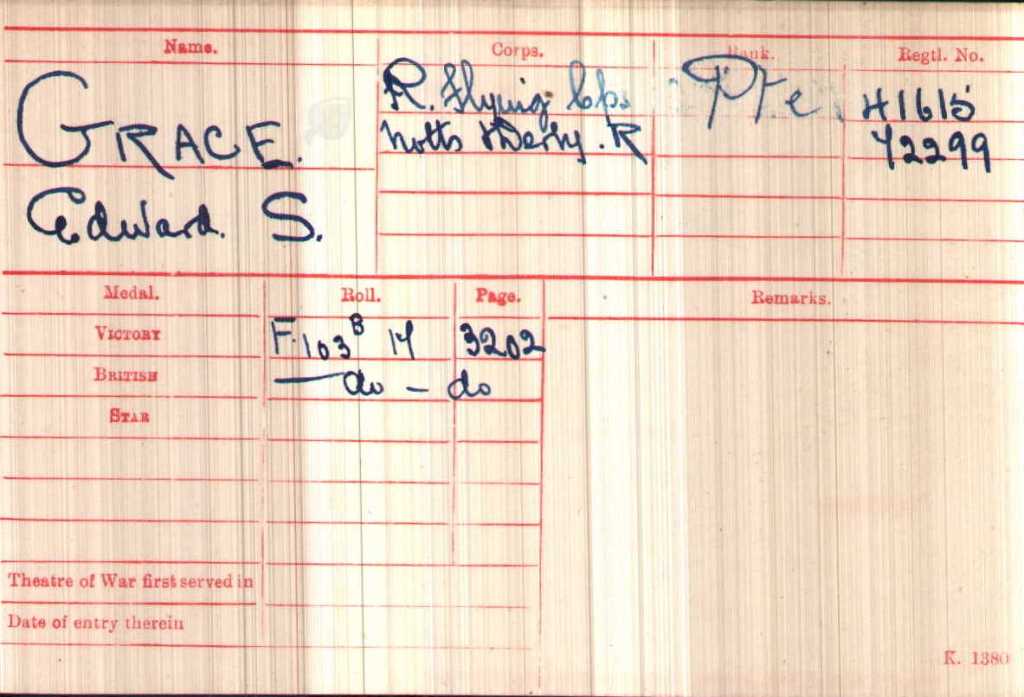 Name. Corps. Rank. Regtl. No.
GRACE. R. Flying Cps. Pte. 41615
Notts & Derby. R 72299
Edward. S.
Medal. Roll. Page. Remarks.
VICTORY F. 103 B 14 3202
BRITISH — do — do
STAR
Theatre of War first served in
Date of entry therein
K. 1380